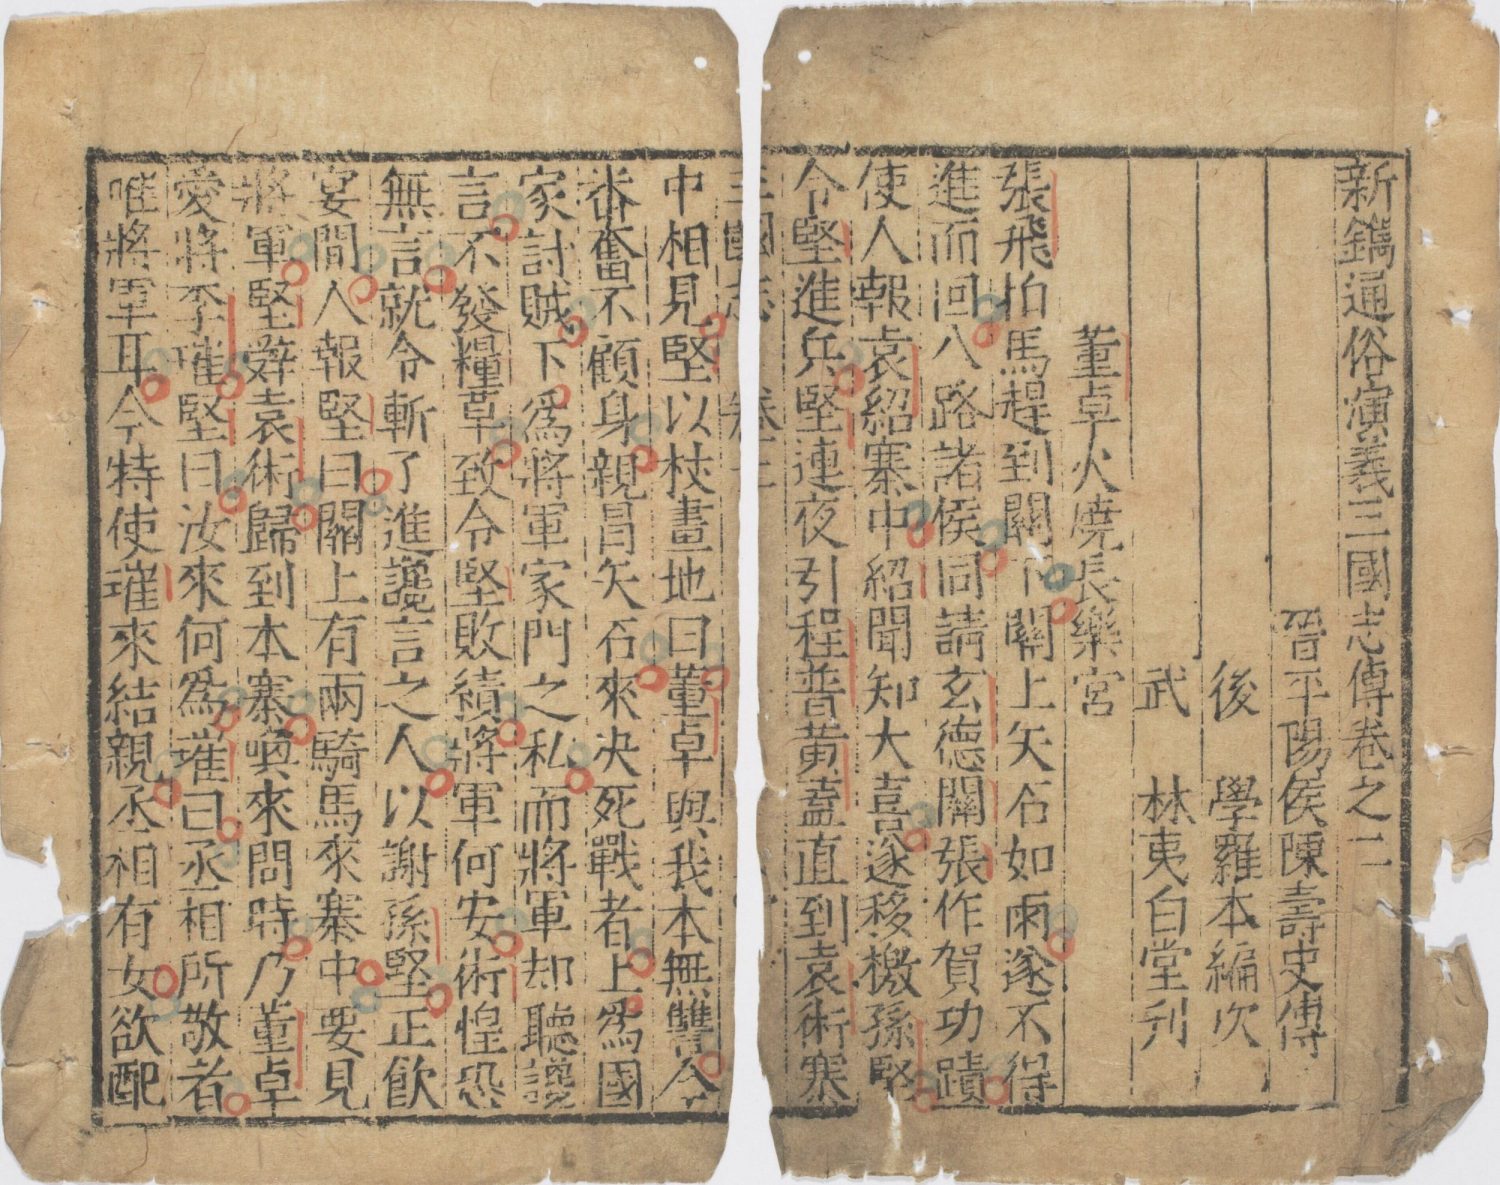 新鐫通俗演義三國志傳卷之二
晉平陽侯陳壽史傳
後學羅本編次
武林夷白堂刋
董卓火燒長樂宮
張飛拍馬趕到關下關上矢石如雨遂不得
進而回八路諸侯同請玄德關張作賀功蹟
使人報袁紹寨中紹聞知大喜遂移檄孫堅
令堅進兵堅連夜引程普黃蓋直到袁術寨
三國志 卷二
中相見堅以杖畫地曰董卓與我本無讐今
番奮不顧身親冒矢石來决死戰者上爲國
家討賊下爲將軍家門之私而將軍却聽讒
言不發糧草致令堅敗績將軍何安術惶恐
無言就令斬了進讒言之人以謝孫堅正飲
宴間人報堅曰關上有兩騎馬來寨中要見
將軍堅辤袁術歸到本寨喚來問時乃董卓
愛將李㒽堅曰汝來何爲㒽曰丞相所敬者
唯將軍耳今特使㒽來結親丞相有女欲配